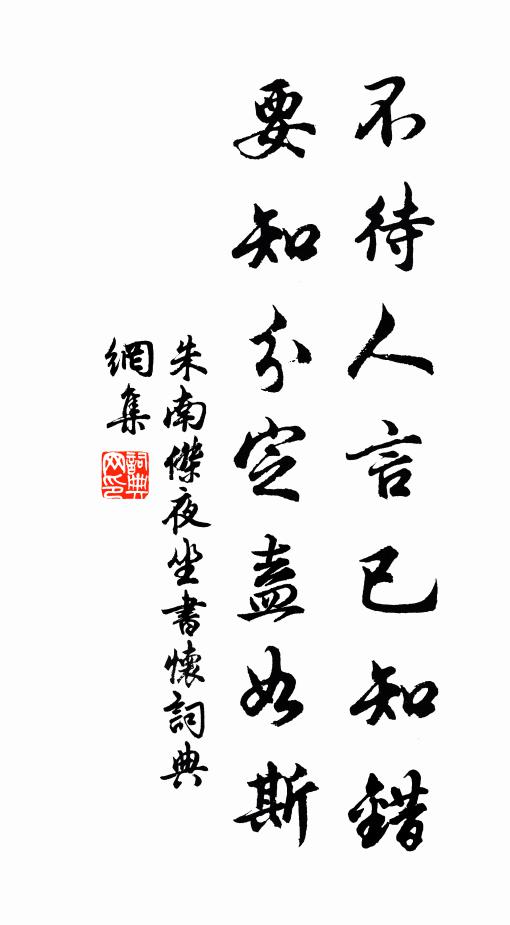 不待人言已知錯
要知分定盍如斯
朱南傑夜坐書懷詞典
網集
詞典網印